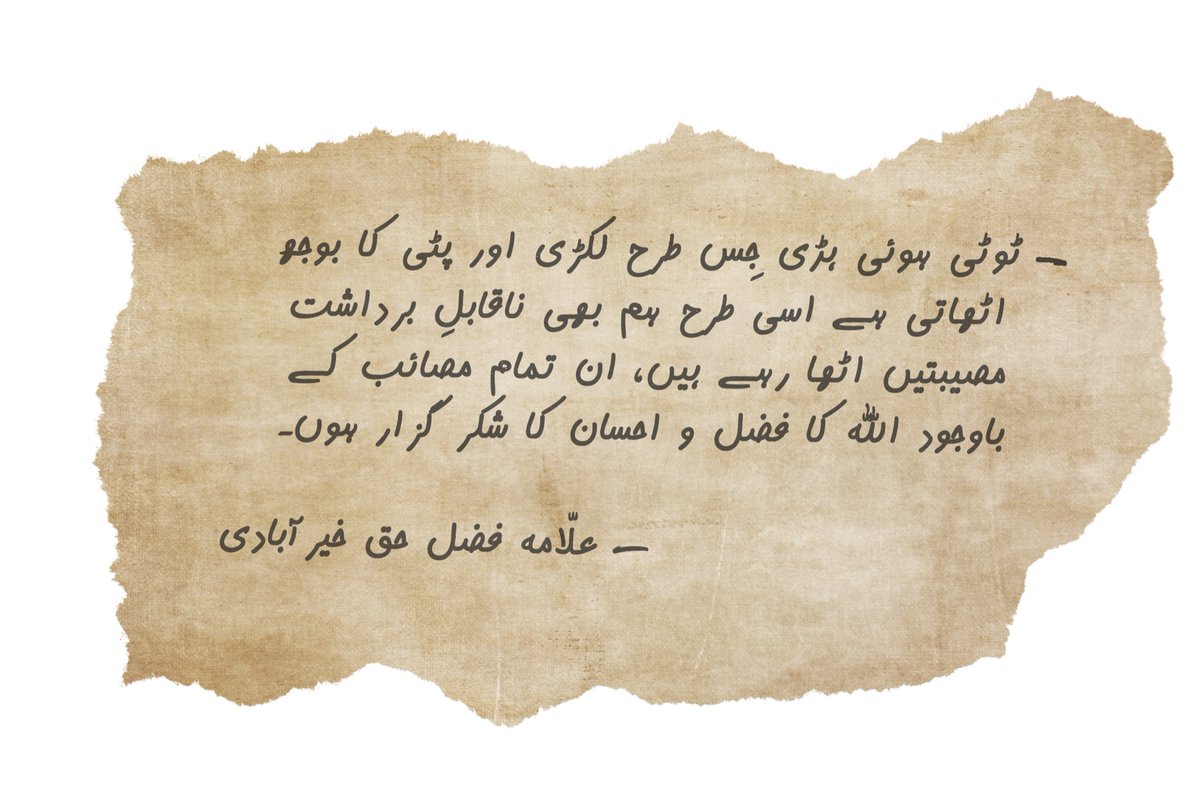 ـ ٹوٹی ہوئی ہڑی جِس طرح لکڑی اور پٹی کا بوجھ
اٹھاتی ہے اسی طرح ہم بھی ناقابلِ برداشت
مصیبتیں اٹھا رہے ہیں، ان تمام مصائب کے
باوجود اللہ کا فضل و احسان کا شکر گزار ہوں۔
ـ علّامہ فضل حق خیر آبادی